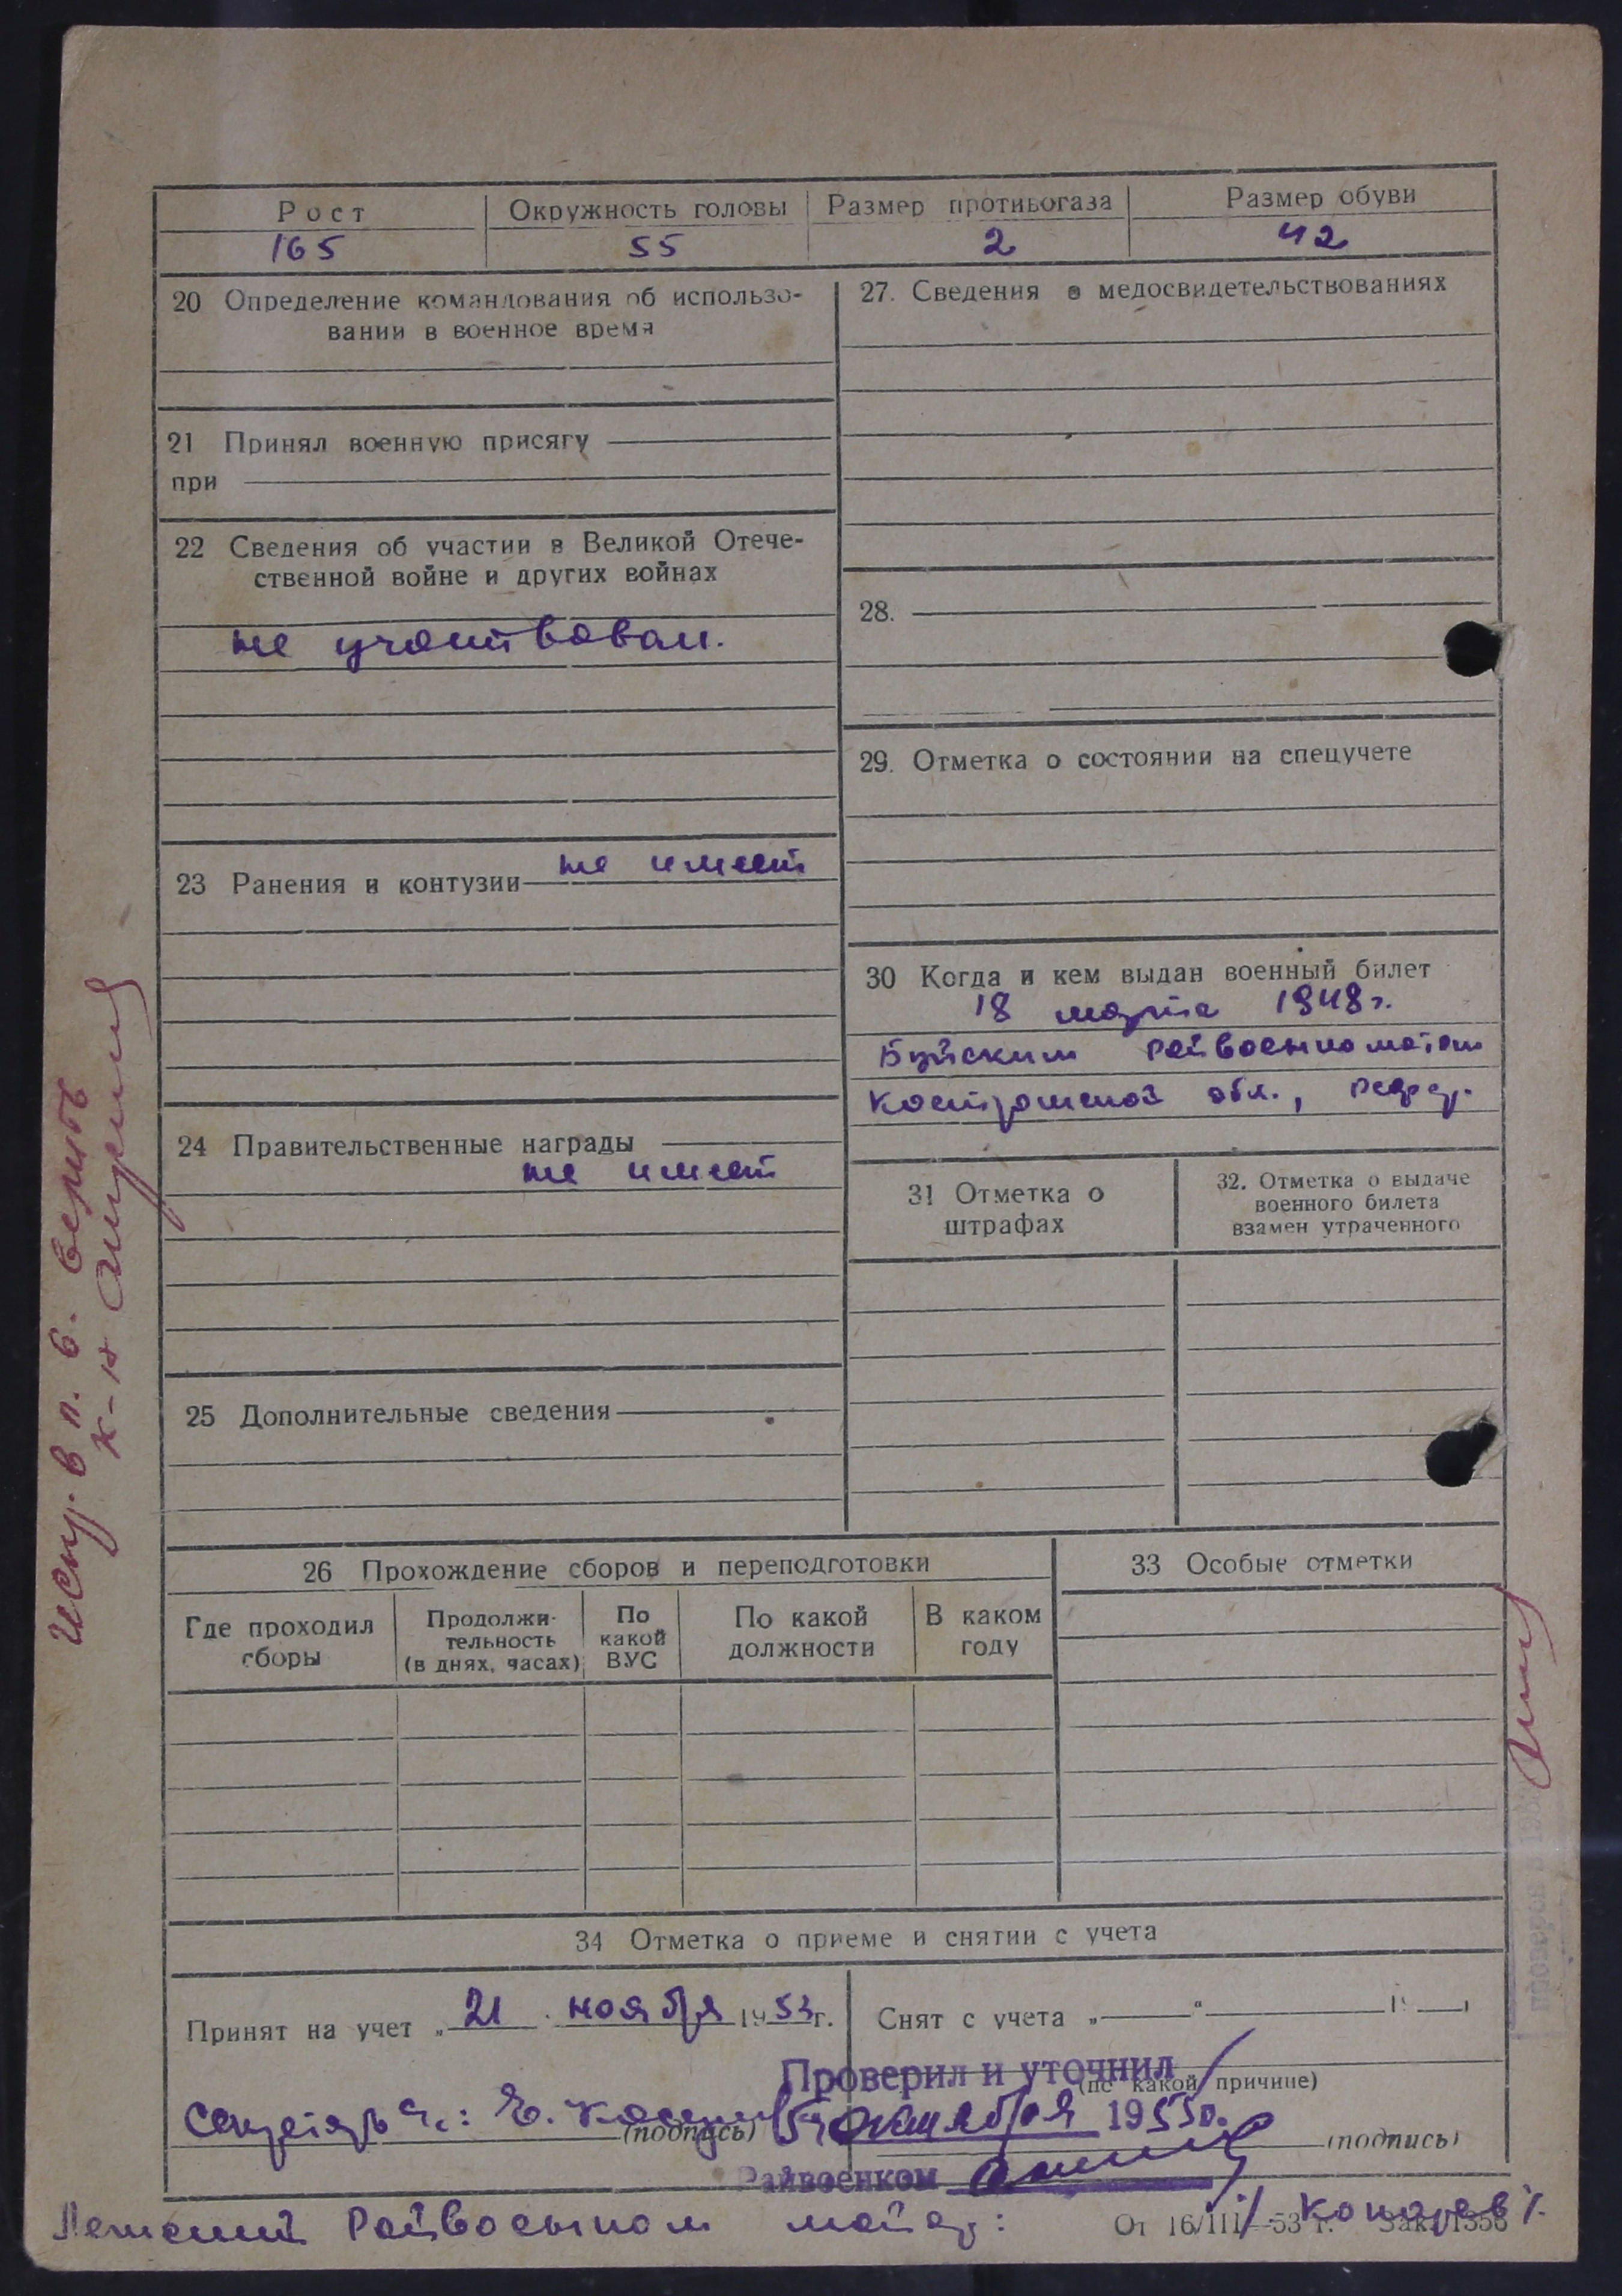 Рост Окружность головы Размер противогаза Размер обуви
165 55 2 42
20 Определение командования об использо-
вании в военное время
21 Принял военную присягу
при
22 Сведения об участии в Великой Отече-
ственной войне и других войнах
не участвовал.
23 Ранения и контузии не имеет
24 Правительственные награды
не имеет
25 Дополнительные сведения
27. Сведения о медосвидетельствованиях
28.
29. Отметка о состоянии на спецучете
30 Когда и кем выдан военный билет
18 марта 1948 г.
Буйским Райвоенкоматом
Костромской обл.,
31 Отметка о
штрафах
32. Отметка о выдаче
военного билета
взамен утраченного
26 Прохождение сборов и переподготовки
Где проходил
сборы
Продолжи-
тельность
(в днях, часах)
По
какой
ВУС
По какой
должности
В каком
году
33 Особые отметки
34 Отметка о приеме и снятии с учета
Принят на учет „21 ноября 1953 г.
Снят с учета „ “ 19
(по какой причине)
Проверил и уточнил
октября 1955 г.
Секретарь
(подпись)
(подпись)
Райвоенком
Райвоенком майор: /Кокарев/.
От 16/III—53 г. Зак. 1356
Испр. в п. 6. верить
к-н